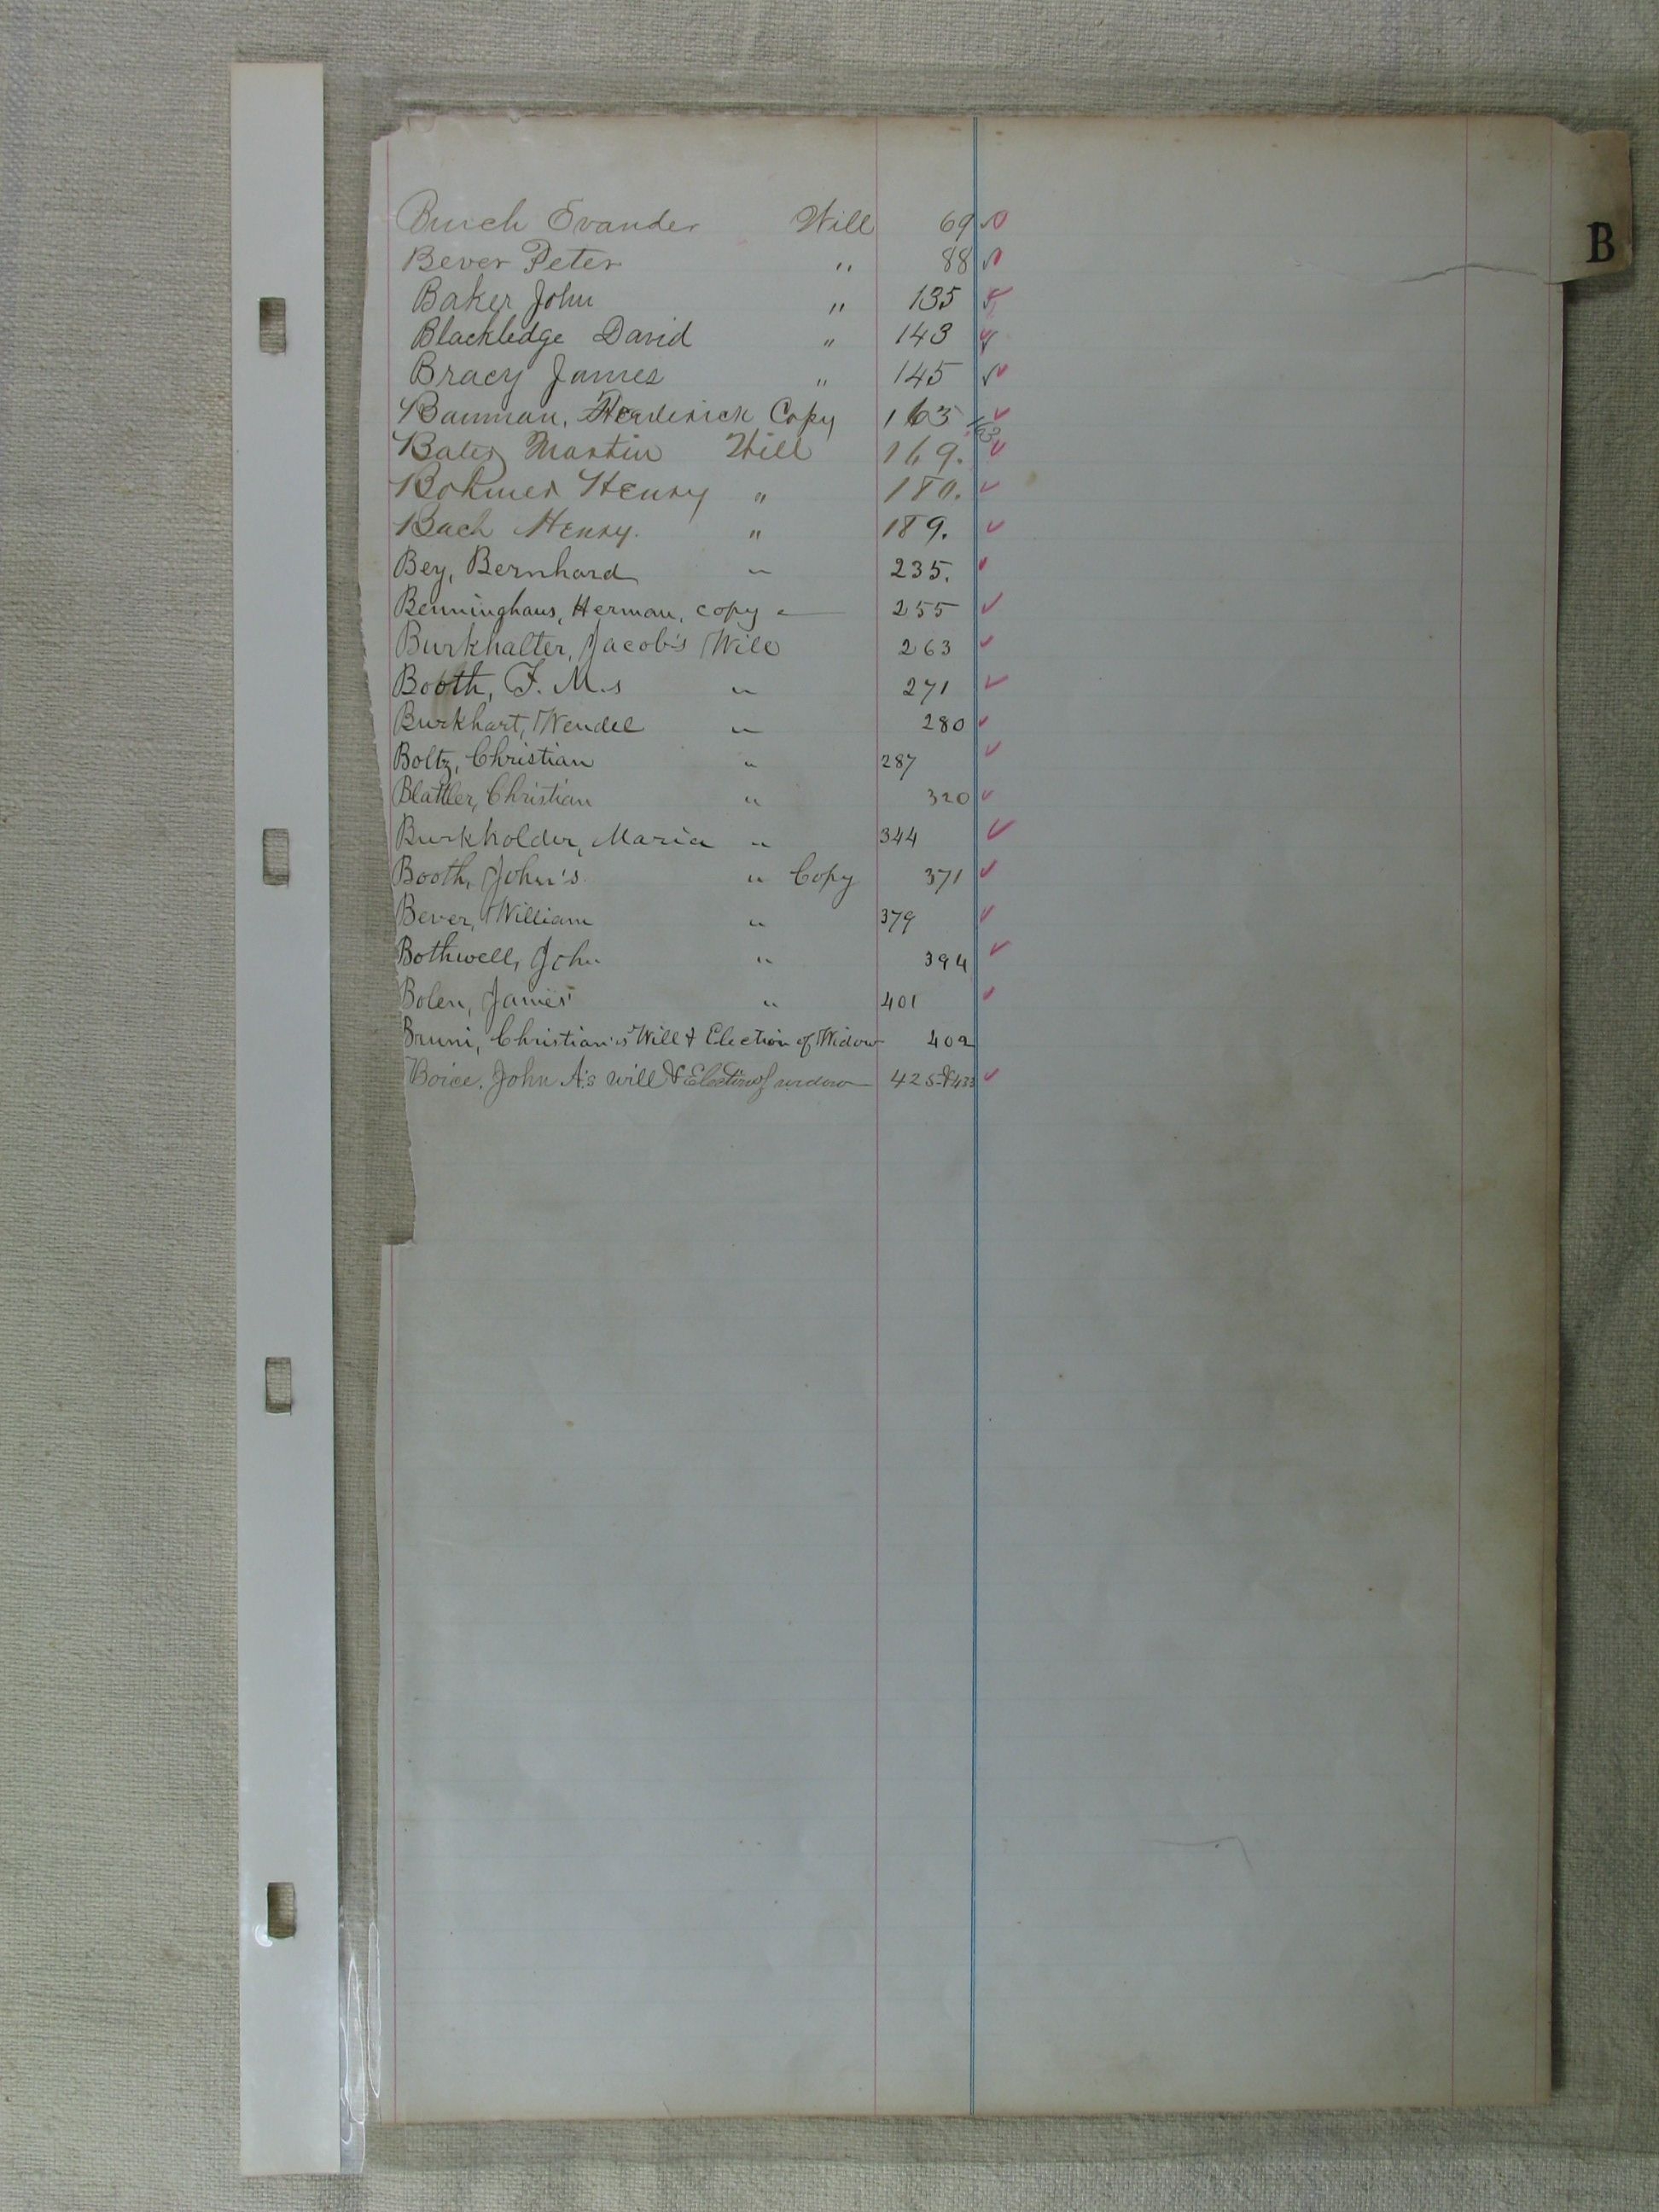 B
Burch Evander Will 69
Bever Peter " 88
Baker John " 135
Blackledge David " 143
Bracy James " 145
Bauman, Frederick Copy 163 163
Bates Martin Will 169.
Bohmer Henry " 180.
Bach Henry. " 189.
Bey, Bernhard " 235.
Benninghaus, Herman, copy " 255
Burkhalter, Jacob's Will 263
Booth, F. M.s " 271
Burkhart, Wendel " 280
Boltz, Christian " 287
Blattler, Christian " 320
Burkholder, Maria " 344
Booth, John's " Copy 371
Bever, William " 379
Bothwell, John " 394
Bolen, James' " 401
Bruni, Christian's Will & Election of Widow 402
Boice. John A's will & Election of widow 425 & 433